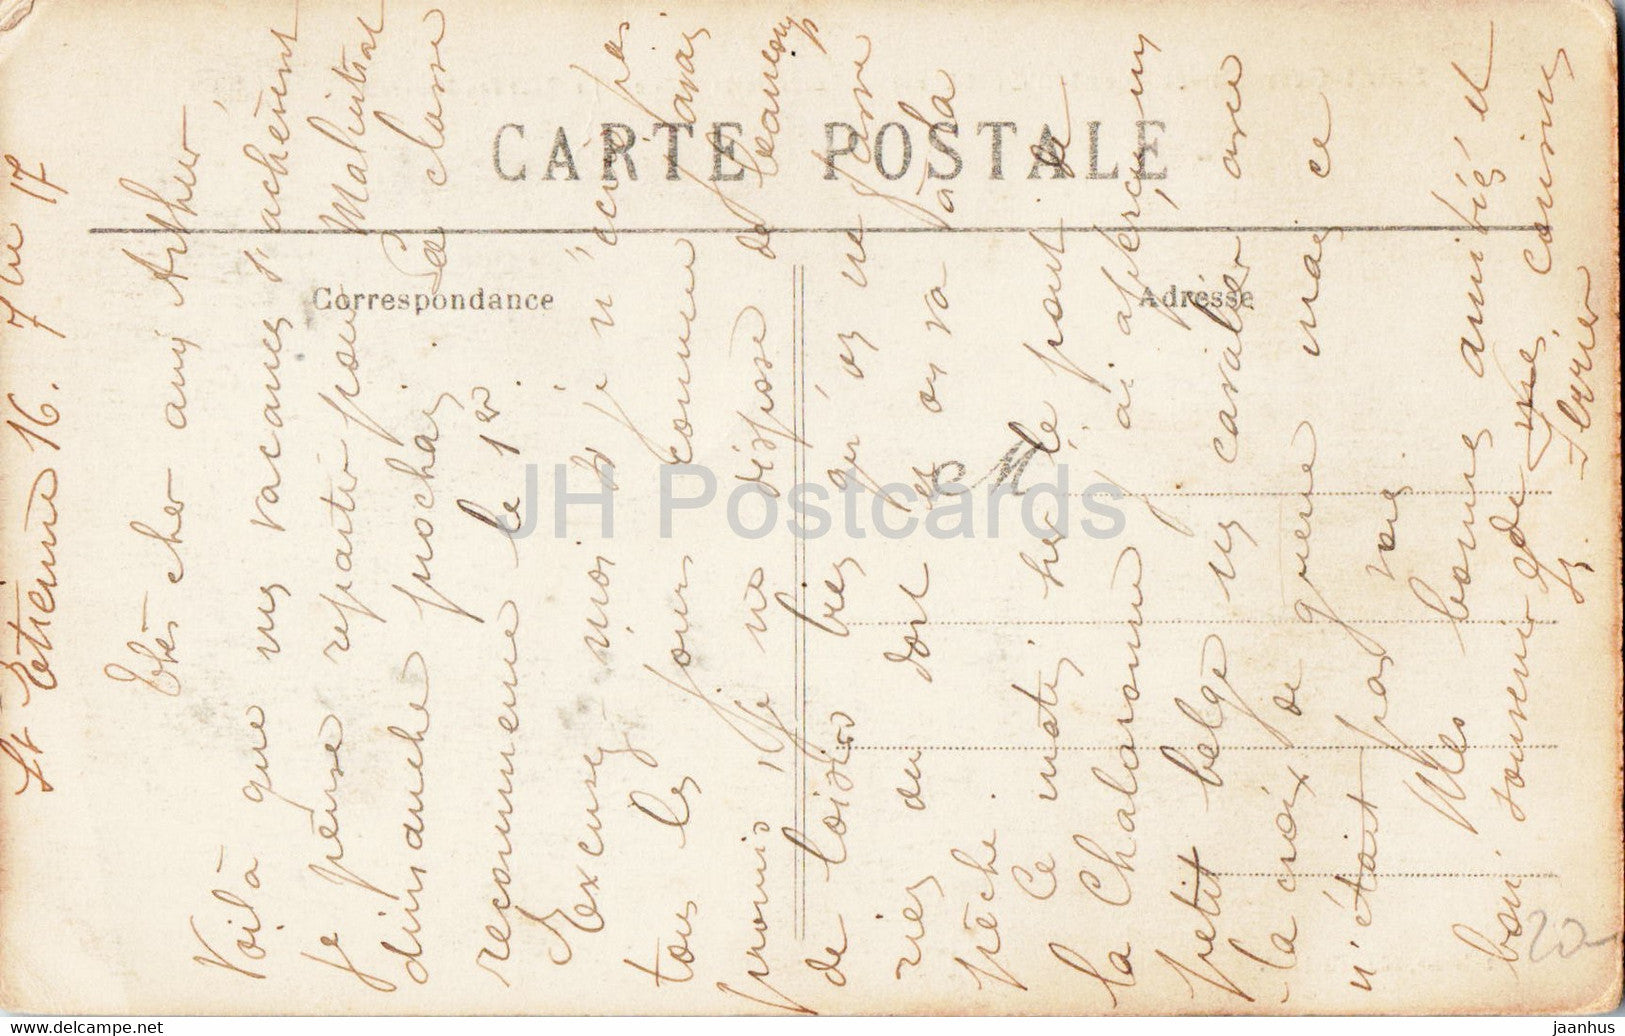 CARTE POSTALE
Correspondance
Adresse
M
St Etienne 16. 7bre 17
Très cher ami Arthur
Voilà que nos vacances s'achèvent
Je pense repartir pour Mahintrat
dimanche prochain. La classe
recommence le 1er
Excusez-moi si je n'écris pas
tous les jours comme j'avais
promis. Je ne dispose de beaucoup
de loisirs bien qu'on ne fasse
rien ou dort et on va à la
pêche.
Ce matin sur le pont de
la Chalaronne j'ai aperçu, un
petit belge un cavalier avec
la croix de guerre mais ce
n'était pas vous
Mes bonnes amitiés et
bon souvenir de mes cousines
20-
JH Postcards
www.delcampe.net
jaanhus